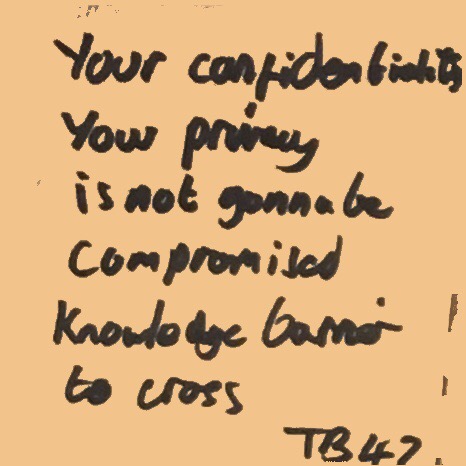 Your confidentiality
Your privacy
is not gonna be
compromised
Knowledge barrier
to cross
TB47